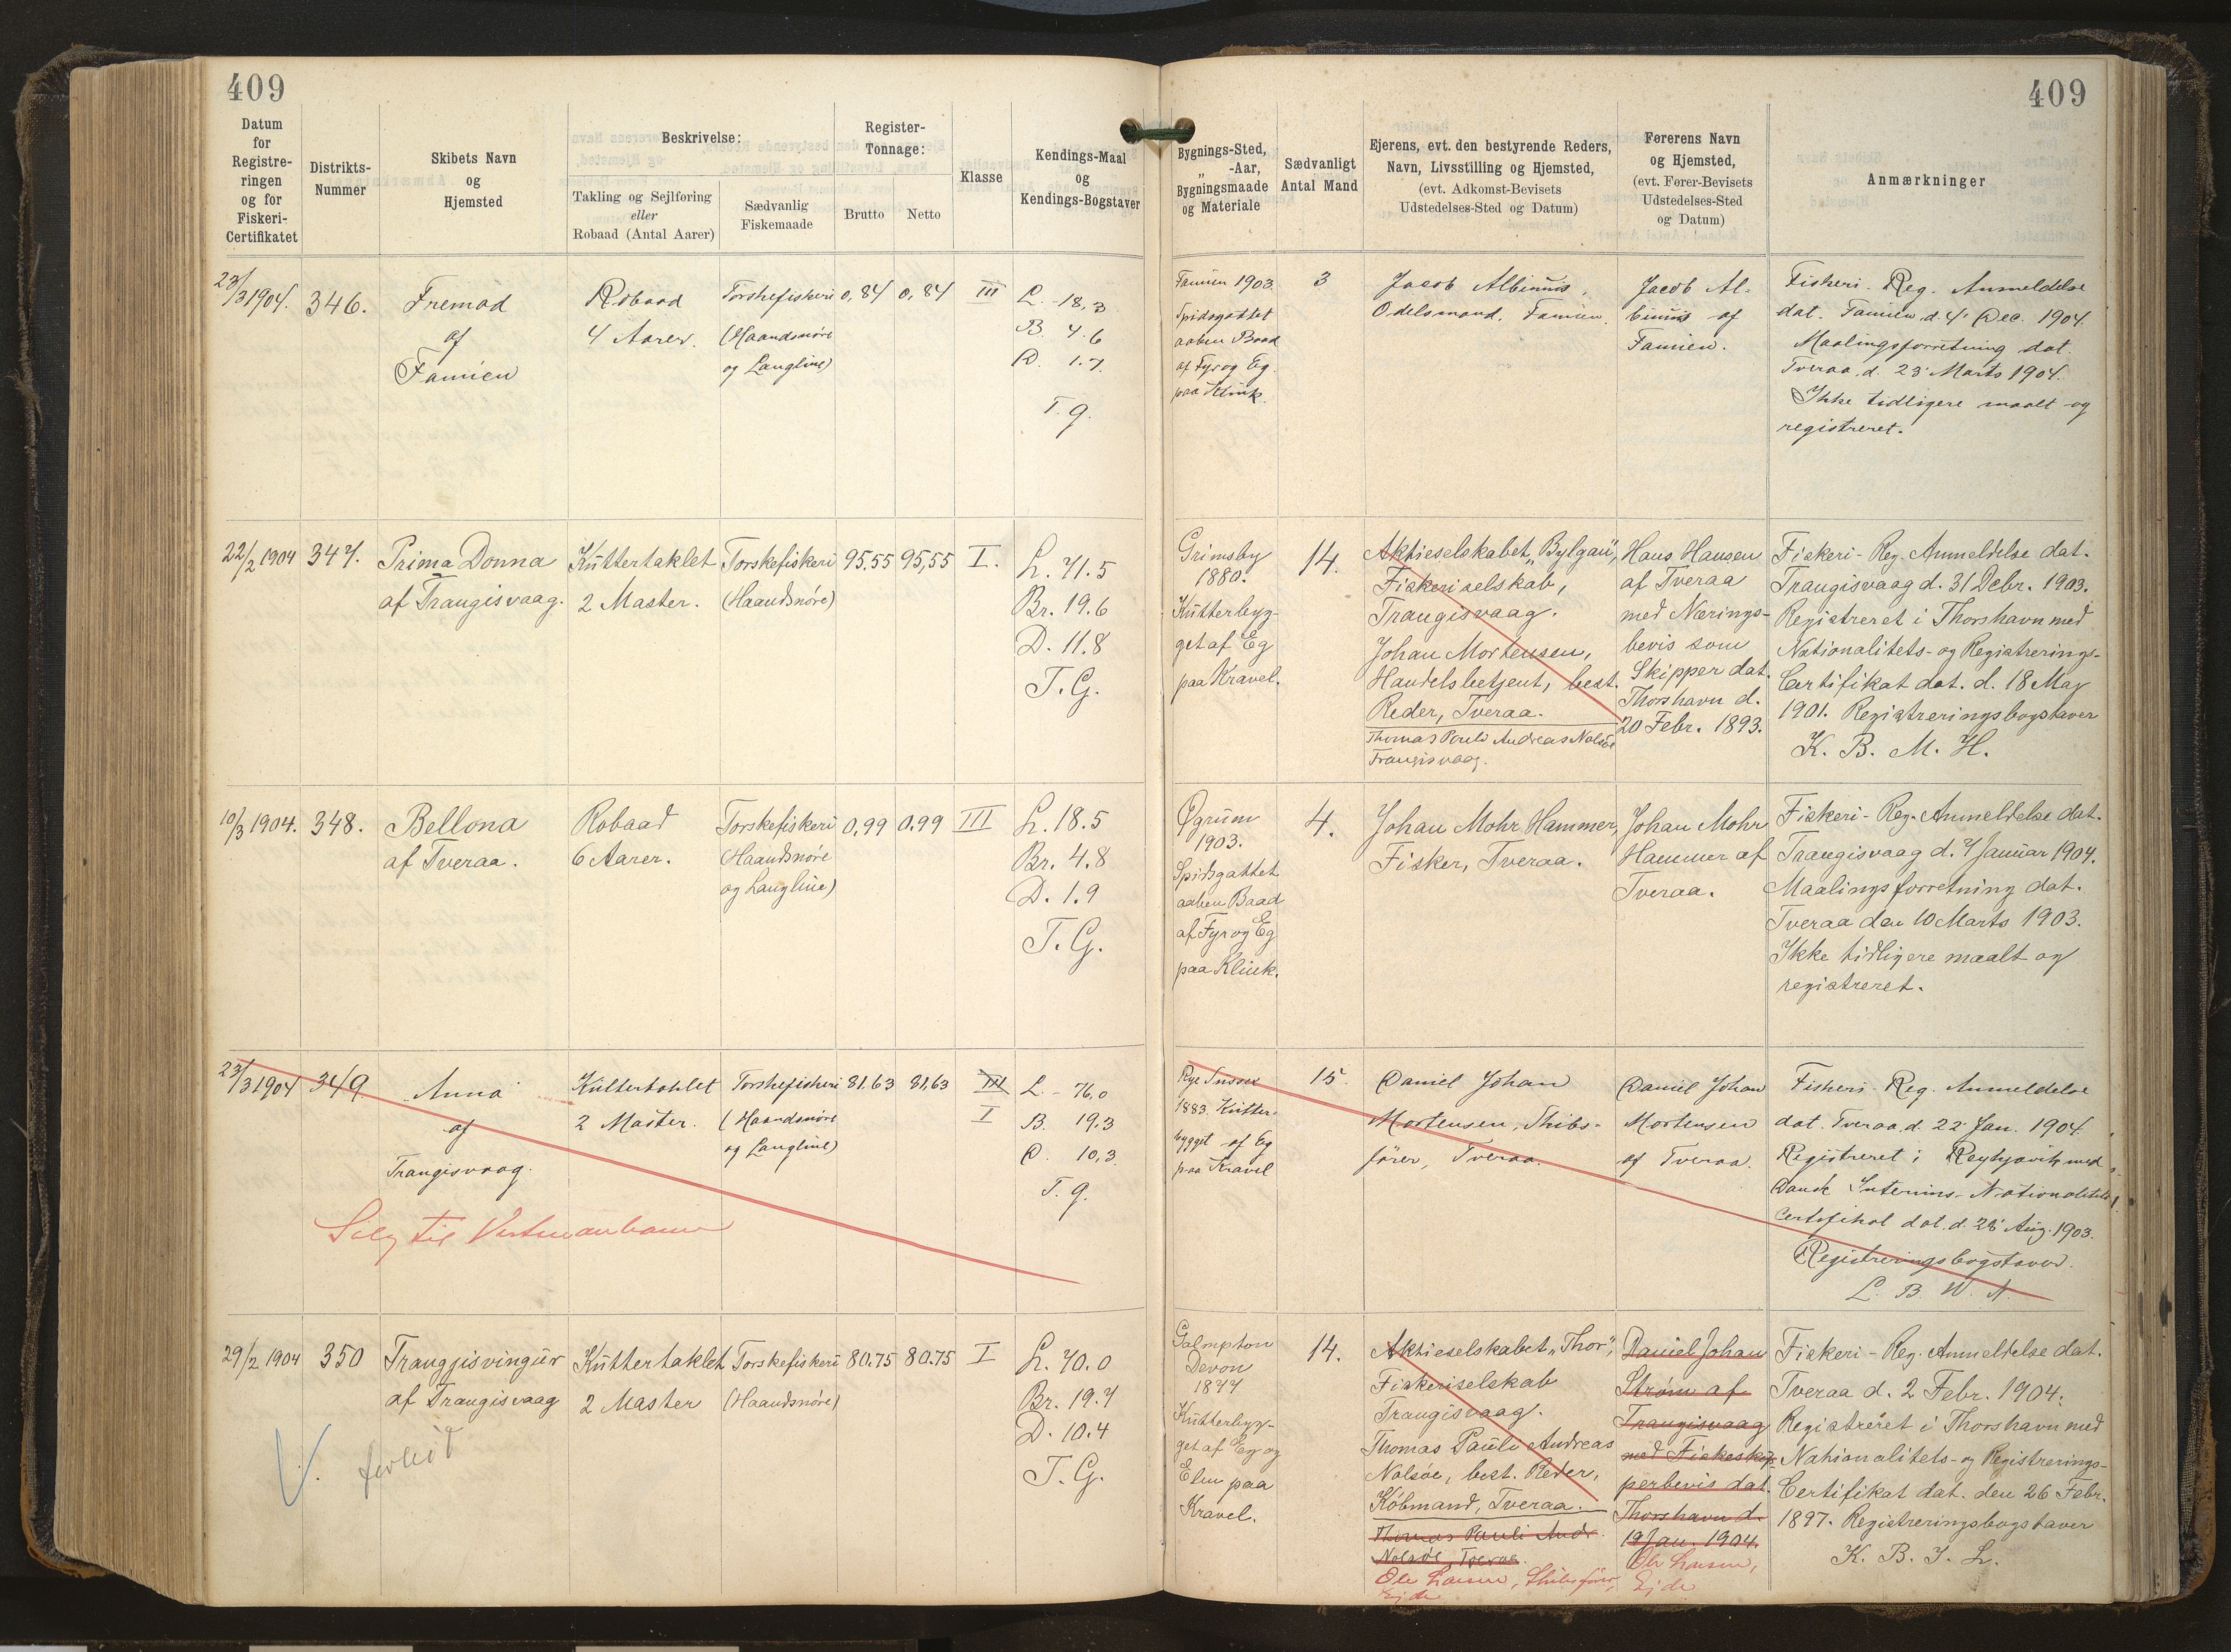 409
409
Datum for Registreringen og for Fiskeri-Certifikatet
Distrikts-Nummer
Skibets Navn og Hjemsted
Beskrivelse:
Takling og Sejlføring eller Robaad (Antal Aarer)
Sædvanlig Fiskemaade
Register-Tonnage:
Brutto
Netto
Klasse
Kendings-Maal og Kendings-Bogstaver
Bygnings-Sted, „ -Aar, Bygningsmaade og Materiale
Sædvanligt Antal Mand
Ejerens, evt. den bestyrende Reders, Navn, Livsstilling og Hjemsted, (evt. Adkomst-Bevisets Udstedelses-Sted og Datum)
Førerens Navn og Hjemsted, (evt. Fører-Bevisets Udstedelses-Sted og Datum)
Anmærkninger
23/3 1904.
346.
Fremad
af
Famien
Robaad
4 Aarer.
Torskefiskeri
(Haandsnøre
og Langline)
0,84
0,84
III
L. 18,3
B. 4.6
D. 1.7
T. G.
Famien 1903.
Spidsgattet
aaben Baad
af Fyr og Eg
paa Klink.
3
Jacob Albinus,
Odelsmand, Famien.
Jacob Al-
binus af
Famien.
Fiskeri-Reg. Anmeldelse
dat. Famien, d. 4' Dec. 1904.
Maalingsforretning dat.
Tveraa, d. 23' Marts 1904.
Ikke tidligere maalt og
registreret.
22/2 1904
347.
Prima Donna
af Trangisvaag.
Kuttertaklet
2 Master.
Torskefiskeri
(Haandsnøre)
95.55
95,55
I.
L. 71.5
Br. 19.6
D. 11.8
T. G.
Grimsby
1880.
Kutterbyg-
get af Eg
paa Kravel.
14.
Aktieselskabet „Bylgan",
Fiskeriselskab,
Trangisvaag.
Johan Mortensen,
Handelsbetjent, best.
Reder, Tveraa.
Thomas Pouli Andreas Nolsøe
Trangisvaag.
Hans Hansen
af Tveraa
med Nærings-
bevis som
Skipper dat.
Thorshavn d.
20 Febr. 1893.
Fiskeri-Reg. Anmeldelse dat.
Trangisvaag d. 31 Debr. 1903.
Registreret i Thorshavn med
Nationalitets- og Registrerings-
Certifikat dat. d. 18 Maj
1901. Registreringsbogstaver
K. B. M. H.
10/3 1904.
348.
Bellona
af Tveraa.
Robaad
6 Aarer.
Torskefiskeri
(Haandsnøre
og Langline)
0,99
0.99
III
L. 18.5
Br. 4.8
D. 1.9
T. G.
Øgrum
1903.
Spidsgattet
aaben Baad
af Fyr og Eg
paa Klink.
4.
Johan Mohr Hammer,
Fisker, Tveraa.
Johan Mohr
Hammer af
Tveraa.
Fiskeri-Reg. Anmeldelse dat.
Trangisvaag d. 7 Januar 1904.
Maalingsforretning dat.
Tveraa den 10 Marts 1903.
Ikke tidligere maalt og
registreret.
23/3 1904
349
Anna
af
Trangisvaag.
Kuttertaklet
2 Master.
Torskefiskeri
(Haandsnøre
og Langline)
81.63
81,63
III
I
L. 76,0
B. 19.3
D. 10,3
T. G.
Solg til
Rye Sussex
1883. Kutter-
bygget af Eg
paa Kravel
15.
Daniel Johan
Mortensen, Skibs-
fører, Tveraa.
Daniel Johan
Mortensen
af Tveraa.
Fiskeri-Reg. Anmeldelse
dat. Tveraa, d. 22' Jan. 1904.
Registreret i Reykjavik med
Dansk Interims-Nationalitets
Certifikat dat. d. 28' Aug. 1903.
Registreringsbogstaver.
L. B. W. N.
29/2 1904
350
Trangjisvingur
af Trangisvaag
Kuttertaklet
2 Master
Torskefiskeri
(Haandsnøre)
80.75
80.75
I
L. 70.0
Br. 19.7
D. 10.4
T. G.
forlist
Galmpton
Devon
1877
Kutterbyg-
get af Eg og
Elm paa
Kravel.
14.
Aktieselskabet „Thor",
Fiskeriselskab
Trangisvaag.
Thomas Pauli Andreas
Nolsøe, best. Reder,
Købmand, Tveraa.
Thomas Pauli Andr.
Nolsøe, Tveraa.
Ole Larsen, Skibsfører,
Ejde
Daniel Johan
Strøm af
Trangisvaag
med Fiskeskip-
perbevis dat.
Thorshavn d.
19 Jan. 1904.
Ole Larsen,
Ejde
Fiskeri-Reg. Anmeldelse dat.
Tveraa d. 2 Febr. 1904.
Registreret i Thorshavn med
Nationalitets- og Registrerings-
Certifikat dat. den 26 Febr.
1897. Registreringsbogstaver
K. B. J. L.